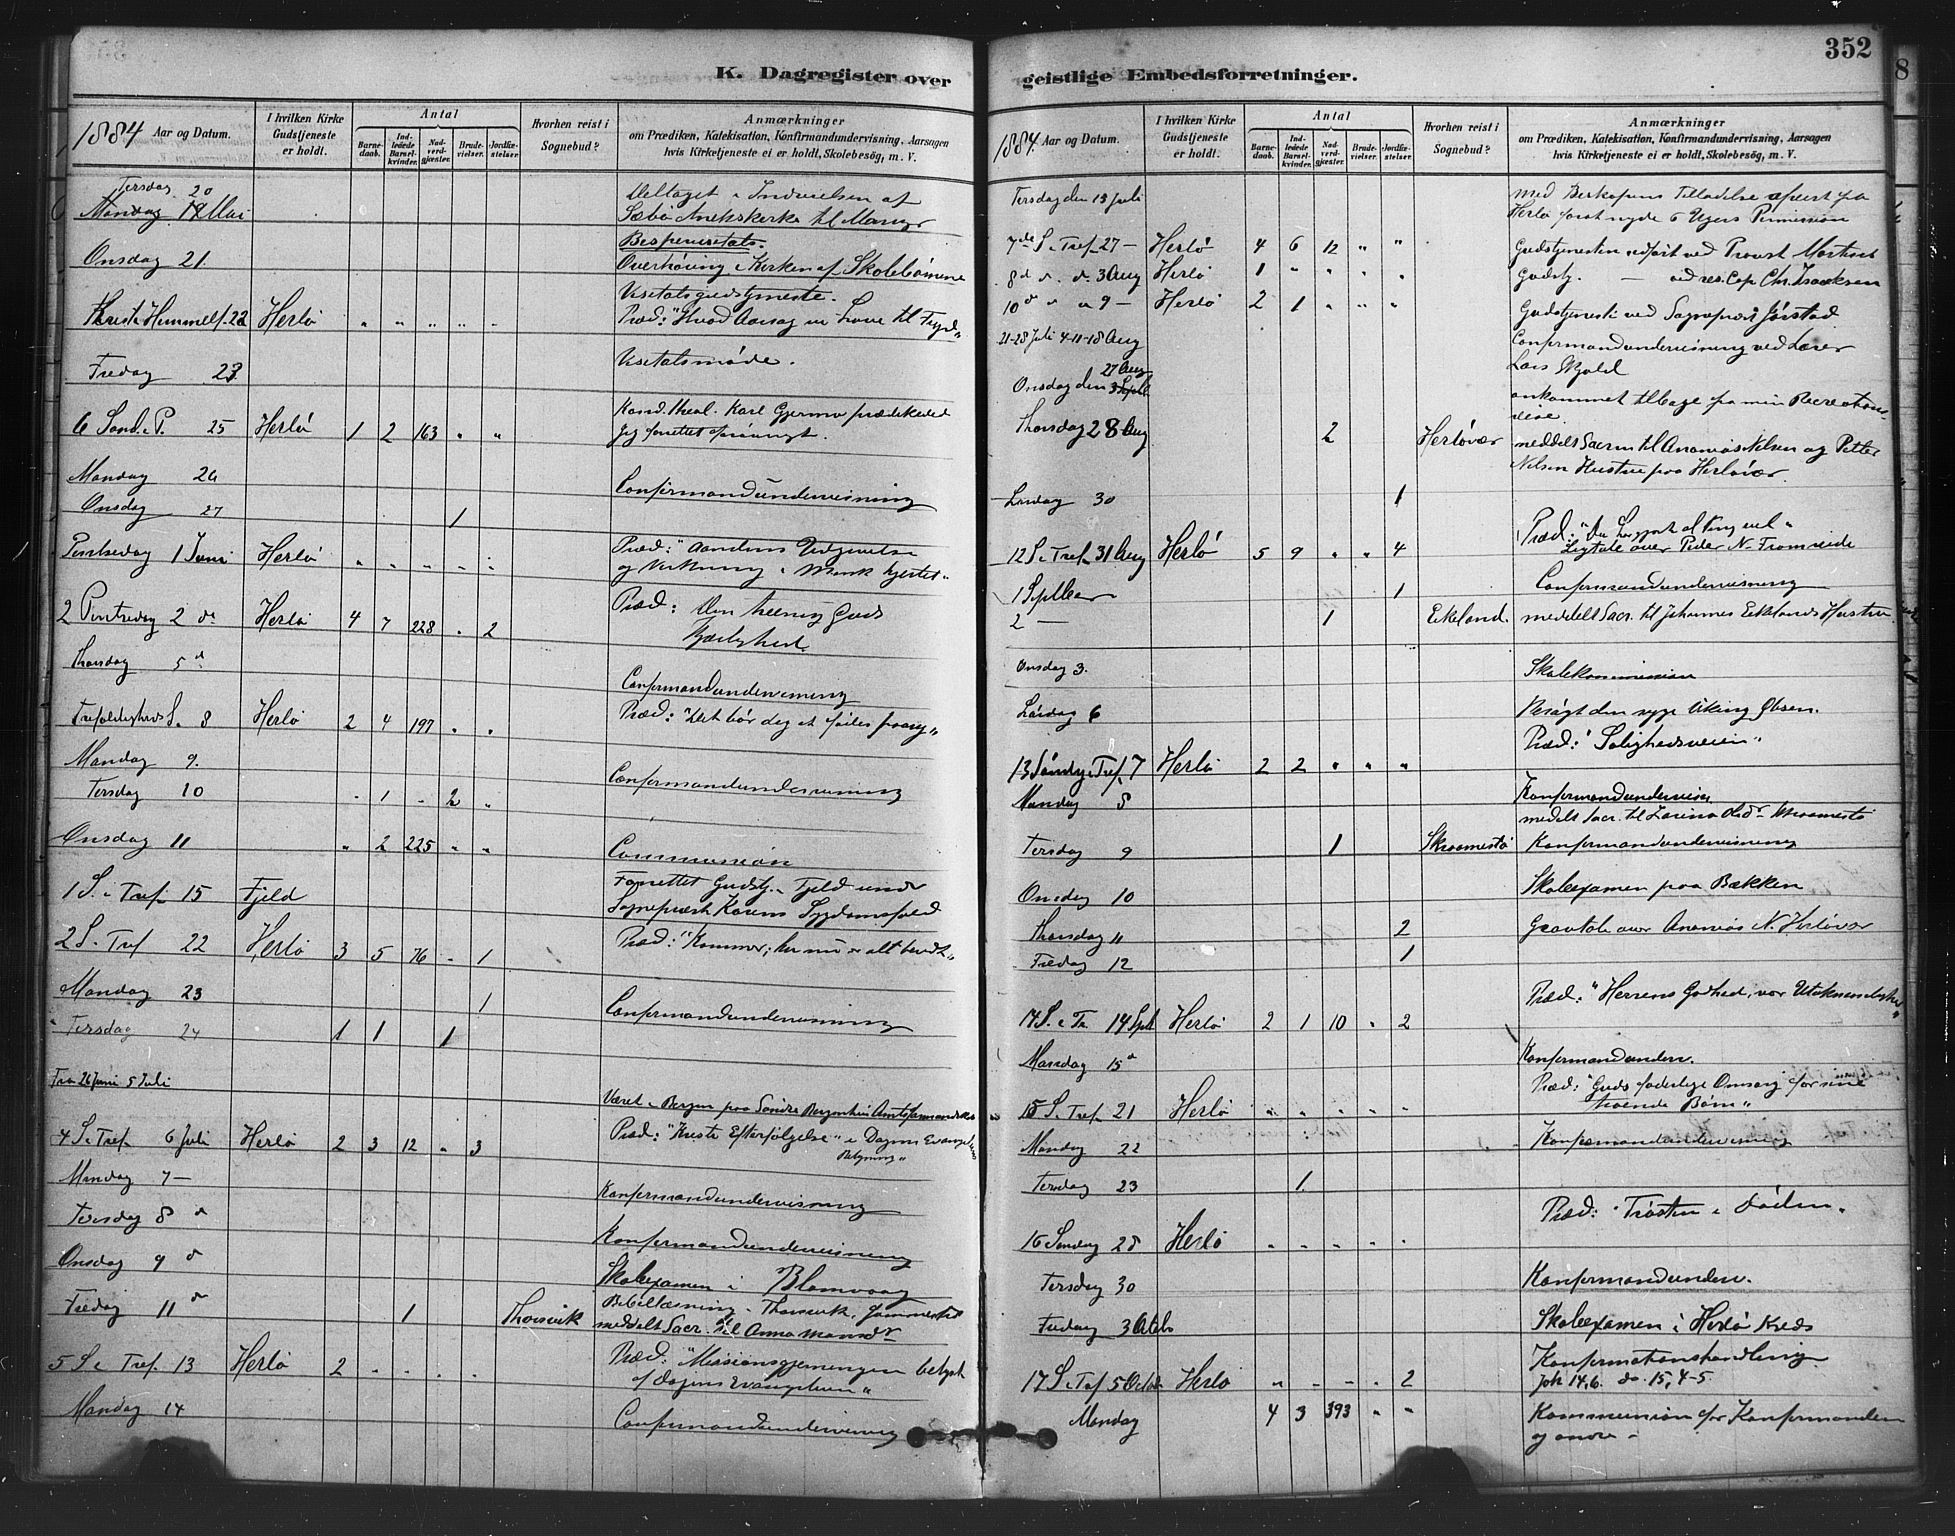 352
K. Dagregister over
1884 Aar og Datum.
I hvilken Kirke Gudstjeneste er holdt.
Antal
Barnedaab.
Indledede Barselkvinder.
Nadverdgjæster.
Brudevielser.
Jordfæstelser.
Hvorhen reist i Sognebud?
Anmærkninger
om Prædiken, Katekisation, Konfirmandundervisning, Aarsagen
hvis Kirketjeneste ei er holdt, Skolebesøg, m. V.
Tersdag 20
Mandag 19 Mai Deltaget i Indvielsen af
Sæbø Anekskerke til Manger
Onsdag 21. Bispevisitats.
Overhøring i Kirken af Skolebørnene
Visitatsgudstjeneste.
Kristi Himmelf. 22 Herlø " " " " " Præd: "Hvad Aarsag en have til Frygd"
Fredag 23 Visitatsmøde.
Kand. theol. Karl Gjerme prædikede
6 Sønd. e P. 25 Herlø 1 2 163 " " Jeg forrettet forøvrigt.
Mandag 26 Confirmandundervisning
Onsdag 27 1
Pintsedag 1 Juni Herlø " " " " " Præd: "Aandens Udgydelse
og Virkning i Menk hjertet"
2 Pintsedag 2 do Herlø 4 7 228 " 2 Præd: Guds
Kjærlighed
Thorsdag 5 d Confirmandundervisning
Trefoldigheds S. 8 Herlø 2 4 197 " " Præd: "Det bør dig at fødes paany"
Mandag 9. Confirmandundervisning
Tersdag 10 " 1 " 2 "
Onsdag 11 " 2 225 " " Communion
1 S. e Tref. 15 Fjeld Forrettet Gudstj. i Fjeld under
Sognepræst Korens Sygdomsforfald
2 S. e Tref 22 Herlø 3 5 76 " 1 Præd: "Kommer; thi nu er alt beredt"
Mandag 23 1 Confirmandundervisning
Tersdag 24 1 1 1
Fra 26 Juni 5 Juli Været i Bergen paa Søndre Bergenhus Amtsformandskab
4 S. e Tref. 6 Juli Herlø 2 3 12 " 3 Præd: "Kristi Efterfølgelse" i Dagens Evangeliums
Belysning"
Mandag 7 — Konfirmandundervisning
Tersdag 8 d Konfirmandundervisning
Onsdag 9 d Skoleexamen i Blomvaag
Fredag 11 d 1 Thorsvik Bibellæsning i Thorsvik,
meddelt Sacr. til Anna Monsdr
5 S. e Tref. 13 Herlø 2 " " " " Præd: "Missionsgjerningen belyst
af dagens Evangelium"
Mandag 14 Confirmandundervisning
geistlige Embedsforretninger.
1884. Aar og Datum.
I hvilken Kirke Gudstjeneste er holdt.
Antal
Barnedaab.
Indledede Barselkvinder.
Nadverdgjæster.
Brudevielser.
Jordfæstelser.
Hvorhen reist i Sognebud?
Anmærkninger
om Prædiken, Katekisation, Konfirmandundervisning, Aarsagen
hvis Kirketjeneste ei er holdt, Skolebesøg, m. V.
Tersdag den 15 Juli med Biskopens Tilladelse afreist fra
Herlø forat nyde 6 Ugers Permission
7de S. e Tref 27 — Herlø 4 6 12 " " Gudstjenesten udført ved Provst
8d " " 3 Aug Herlø 1 " " " " Gudstj. — ved res. Cap. Chr. Isaaksen
10d " " 9 — Herlø 2 1 " " " Gudstjeneste ved Sognepræst Jørstad
21-28 Juli 4-11-18 Aug Confirmandundervisning ved Lærer
27 Aug Lars
Onsdag den 3 Septb. ankommet tilbage fra min Recreations-
reise
Thorsdag 28 Aug 2 Herløvær meddelt Sacrm til Ananias Nilsen og Petter
Nilsen Hustru paa Herløvær.
Lørdag 30 1
Præd:
12 S. e Tref 31 Aug Herlø 5 9 " " 4 Ligtale over Peder N. Fromreide
1 Septber 1 Confirmandundervisning
2 — 1 Ekeland. meddelt Sacr. til Johannes Ekelands Hustru
Onsdag 3. Skolekommission
Lørdag 6 Besøgt den syge Viking Olsen.
Præd: "Salighedsveien"
13 Søndg e Tref. 7 Herlø 2 2 " " "
Mandag 8 Konfirmandundervisn
meddelt Sacr. til
Tersdag 9 1 Konfirmandundervisning
Onsdag 10 Skoleexamen paa Bakken
Thorsdag 11 2 Gravtale over Ananias N. Herløvær
Fredag 12 1
Præd: "Herrens Godhed, vor Utaknemlighed"
14 S. e Tr. 14 Sept Herlø 2 1 10 " 2
Mandag 15 d Konfirmandunderv.
Præd: "Guds faderlige Omsorg for sine
15 S. e Tref 21 Herlø " " " " " troende Børn"
Mandag 22 Konfirmandundervisning
Tersdag 23 1
Præd: "Trøsten i Døden"
16 Søndag 28 Herlø " " " " "
Tersdag 30 Konfirmandunderv.
Fredag 3 Octob Skoleexamen i Herlø Kreds
Konfirmationshandling
17 S. e Tref 5 Octob Herlø " " " " 2 Joh 14,6. do. 15, 4-5
Mandag 4 3 393 " " Kommunion for Konfirmanden
og andre —